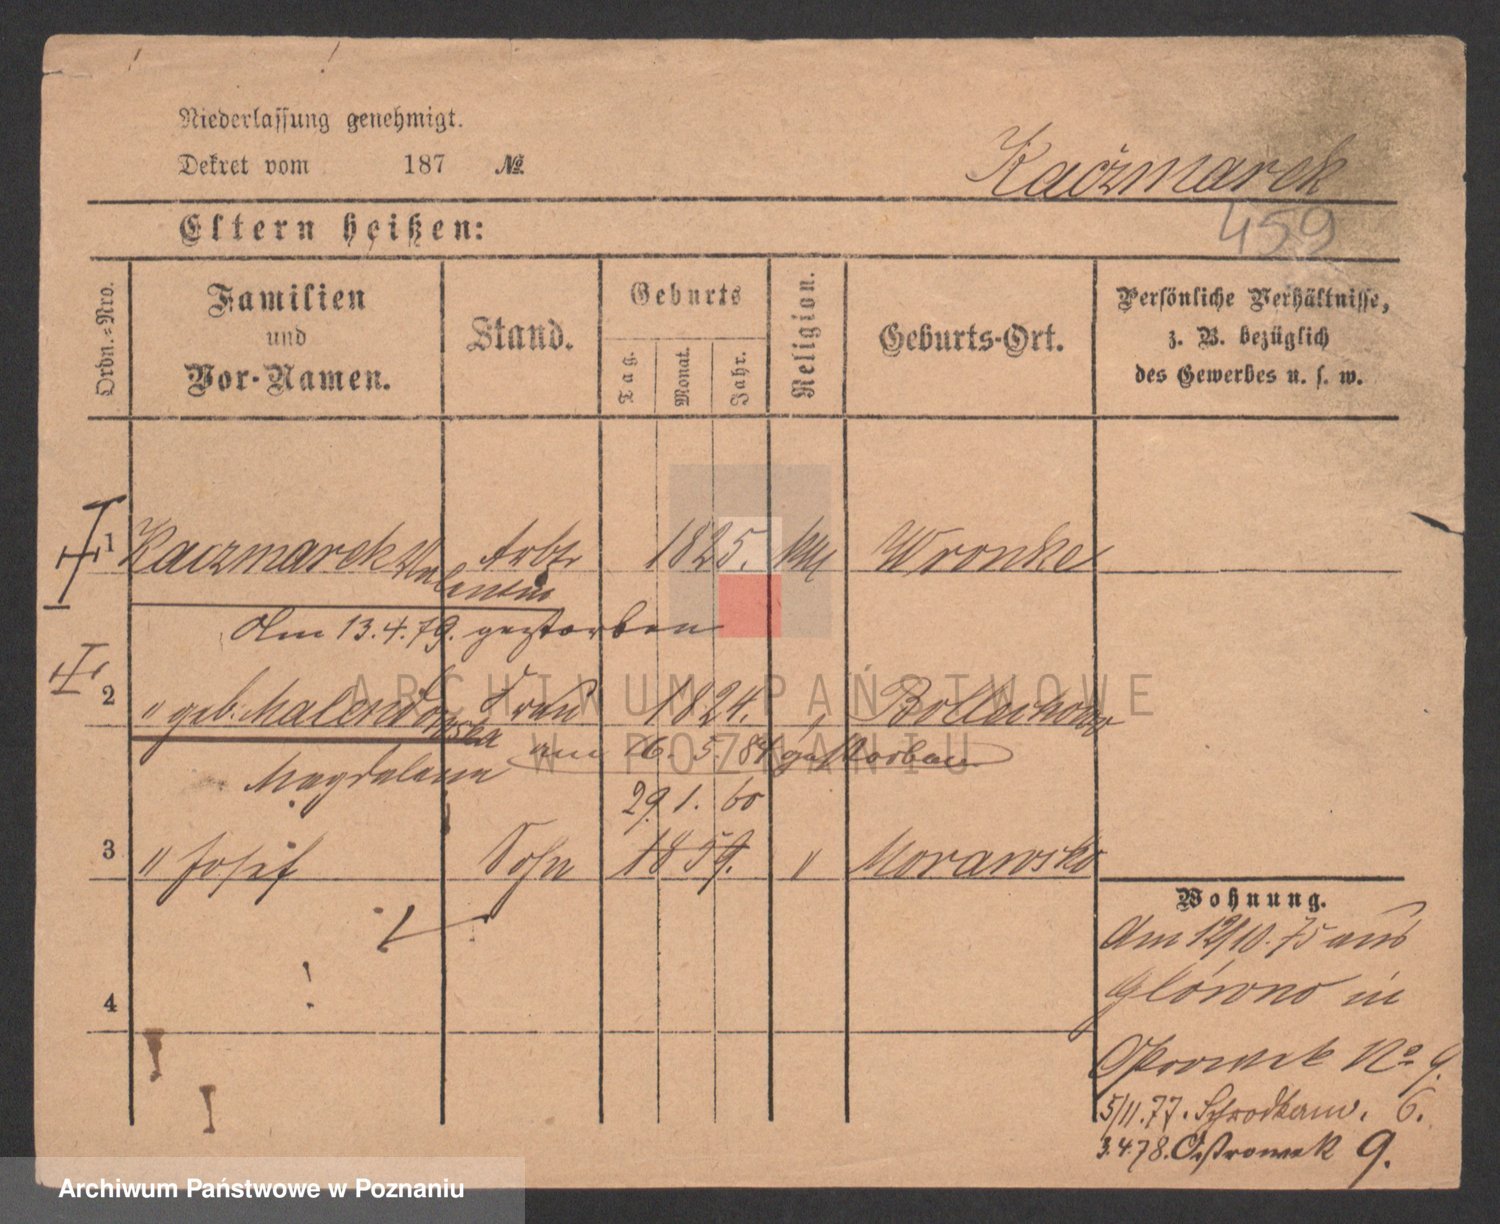 Niederlassung genehmigt.
Dekret vom 187 №
Kaczmarek
459
Eltern heißen:
Ordn.=Nro.
Familien und Vor-Namen.
Stand.
Geburts
Tag.
Monat.
Jahr.
Religion.
Geburts-Ort.
Persönliche Verhältnisse, z. B. bezüglich des Gewerbes u. s. w.
1 Kaczmarek Valentin Arbtr 1825. Wronke
Am 13.4.79. gestorben
2 " geb. Malendowska Frau 1824. "
Magdalena am 16. 5. 84 gestorben
29. 1. 60
3 " Josef Sohn 1859. " Morawsko
4
Wohnung.
Am 12/10. 75 aus
Glówno in
Ostrowek No 9.
5/11.77. Schrodkaw. 6.
3.4.78. Ostrowek 9.
ARCHIWUM PAŃSTWOWE
W POZNANIU
Archiwum Państwowe w Poznaniu